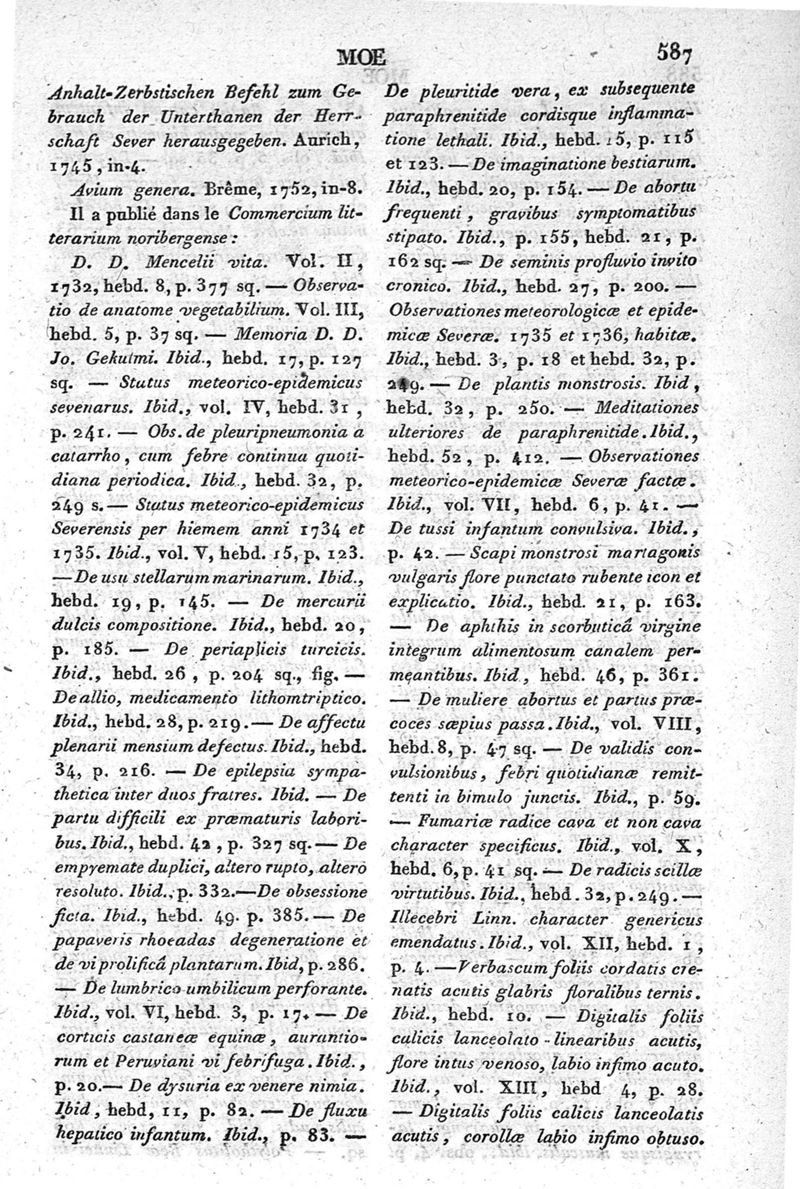 MOE 587
Anhalt-Zerbstischen Befehl zum Ge-
brauch der Unterthanen der Herr-
schaft Sever herausgegeben. Aurich,
1745, in-4.
Avium genera. Brême, 1752, in-8.
Il a publié dans le Commercium lit-
terarium noribergense :
D. D. Mencelii vita. Vol. II,
1732, hebd. 8, p. 377 sq. — Observa-
tio de anatome vegetabilium. Vol. III,
hebd. 5, p. 37 sq. — Memoria D. D.
Jo. Gekulmi. Ibid., hebd. 17, p. 127
sq. — Status meteorico-epidemicus
sevenarus. Ibid., vol. IV, hebd. 31,
p. 241. — Obs. de pleuripneumonia a
catarrho, cum febre continua quoti-
diana periodica. Ibid., hebd. 32, p.
249 s. — Status meteorico-epidemicus
Severensis per hiemem anni 1734 et
1735. Ibid., vol. V, hebd. 15, p. 123.
— De usu stellarum marinarum. Ibid.,
hebd. 19, p. 145. — De mercurii
dulcis compositione. Ibid., hebd. 20,
p. 185. — De periaplicis turcicis.
Ibid., hebd. 26, p. 204 sq., fig. —
De allio, medicamento lithomtriptico.
Ibid., hebd. 28, p. 219. — De affectu
plenarii mensium defectus. Ibid., hebd.
34, p. 216. — De epilepsia sympa-
thetica inter duos fratres. Ibid. — De
partu difficili ex præmaturis labori-
bus. Ibid., hebd. 42, p. 327 sq. — De
empyemate duplici, altero rupto, altero
resoluto. Ibid., p. 332. — De obsessione
ficta. Ibid., hebd. 49. p. 385. — De
papaveris rhoeadas degeneratione et
de vi prolificâ plantarum. Ibid, p. 286.
— De lumbrico umbilicum perforante.
Ibid., vol. VI, hebd. 3, p. 17. — De
corticis castaneæ equinæ, aurantio-
rum et Peruviani vi febrifuga. Ibid.,
p. 20. — De dysuria ex venere nimia.
Ibid, hebd, 11, p. 82. — De fluxu
hepatico infantum. Ibid., p. 83. —
De pleuritide vera, ex subsequente
paraphrenitide cordisque inflamma-
tione lethali. Ibid., hebd. 15, p. 115
et 123. — De imaginatione bestiarum.
Ibid., hebd. 20, p. 154. — De abortu
frequenti, gravibus symptomatibus
stipato. Ibid., p. 155, hebd. 21, p.
162 sq. — De seminis profluvio invito
cronico. Ibid., hebd. 27, p. 200. —
Observationes meteorologicæ et epide-
micæ Severæ. 1735 et 1736, habitæ.
Ibid., hebd. 3, p. 18 et hebd. 32, p.
249. — De plantis monstrosis. Ibid,
hebd. 32, p. 250. — Meditationes
ulteriores de paraphrenitide. Ibid.,
hebd. 52, p. 412. — Observationes
meteorico-epidemicæ Severæ factæ.
Ibid., vol. VII, hebd. 6, p. 41. —
De tussi infantum convulsiva. Ibid.,
p. 42. — Scapi monstrosi martagonis
vulgaris flore punctato rubente icon et
explicatio. Ibid., hebd. 21, p. 163.
— De aphthis in scorbuticâ virgine
integrum alimentosum canalem per-
meantibus. Ibid, hebd. 46, p. 361.
— De muliere abortus et partus præ-
coces sæpius passa. Ibid., vol. VIII,
hebd. 8, p. 47 sq. — De validis con-
vulsionibus, febri quotidianæ remit-
tenti in bimulo junctis. Ibid., p. 59.
— Fumariæ radice cava et non cava
character specificus. Ibid., vol. X,
hebd. 6, p. 41 sq. — De radicis scillæ
virtutibus. Ibid., hebd. 32, p. 249. —
Illecebri Linn. character genericus
emendatus. Ibid., vol. XII, hebd. 1,
p. 4. — Verbascum foliis cordatis cre-
natis acutis glabris floralibus ternis.
Ibid., hebd. 10. — Digitalis foliis
calicis lanceolato-linearibus acutis,
flore intus venoso, labio infimo acuto.
Ibid., vol. XIII, hebd 4, p. 28.
— Digitalis foliis calicis lanceolatis
acutis, corollæ labio infimo obtuso.